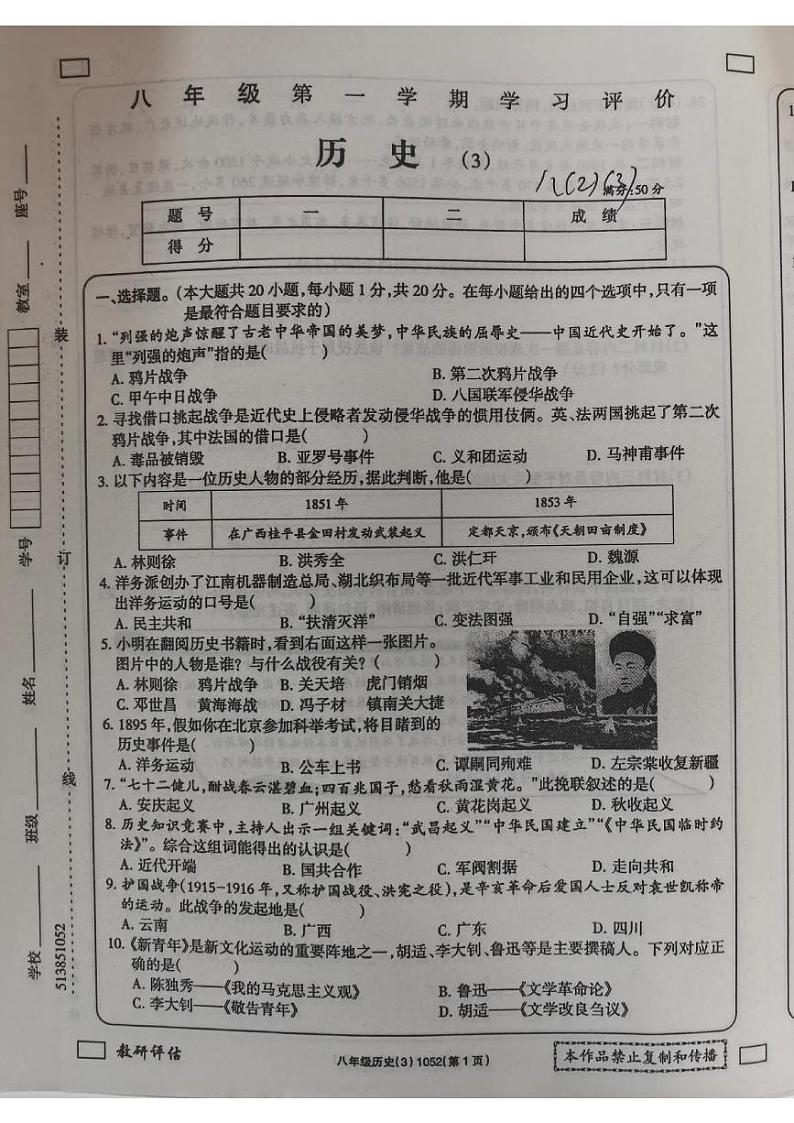 八年级第一学期学习评价
历史(3)
八(2)(3)
满分:50分
题号 一 二 成绩
得分
一、选择题。(本大题共20小题,每小题1分,共20分。在每小题给出的四个选项中,只有一项
是最符合题目要求的)
1.“列强的炮声惊醒了古老中华帝国的美梦,中华民族的屈辱史——中国近代史开始了。”这
里“列强的炮声”指的是( )
A. 鸦片战争 B. 第二次鸦片战争
C. 甲午中日战争 D. 八国联军侵华战争
2. 寻找借口挑起战争是近代史上侵略者发动侵华战争的惯用伎俩。英、法两国挑起了第二次
鸦片战争,其中法国的借口是( )
A. 毒品被销毁 B. 亚罗号事件 C. 义和团运动 D. 马神甫事件
3. 以下内容是一位历史人物的部分经历,据此判断,他是( )
时间 1851年 1853年
事件 在广西桂平县金田村发动武装起义 定都天京,颁布《天朝田亩制度》
A. 林则徐 B. 洪秀全 C. 洪仁玕 D. 魏源
4. 洋务派创办了江南机器制造总局、湖北织布局等一批近代军事工业和民用企业,这可以体现
出洋务运动的口号是( )
A. 民主共和 B. “扶清灭洋” C. 变法图强 D. “自强”“求富”
5. 小明在翻阅历史书籍时,看到右面这样一张图片。
图片中的人物是谁?与什么战役有关?( )
A. 林则徐 鸦片战争 B. 关天培 虎门销烟
C. 邓世昌 黄海海战 D. 冯子材 镇南关大捷
6. 1895年,假如你在北京参加科举考试,将目睹到的
历史事件是( )
A. 洋务运动 B. 公车上书 C. 谭嗣同殉难 D. 左宗棠收复新疆
7. “七十二健儿,酣战春云湛碧血;四百兆国子,愁看秋雨湿黄花。”此挽联叙述的是( )
A. 安庆起义 B. 广州起义 C. 黄花岗起义 D. 秋收起义
8. 历史知识竞赛中,主持人出示一组关键词:“武昌起义”“中华民国建立”“《中华民国临时约
法》”。综合这组词能得出的认识是( )
A. 近代开端 B. 国共合作 C. 军阀割据 D. 走向共和
9. 护国战争(1915-1916年,又称护国战役、洪宪之役),是辛亥革命后爱国人士反对袁世凯称帝
的运动。此战争的发起地是( )
A. 云南 B. 广西 C. 广东 D. 四川
10.《新青年》是新文化运动的重要阵地之一,胡适、李大钊、鲁迅等是主要撰稿人。下列对应正
确的是( )
A. 陈独秀——《我的马克思主义观》 B. 鲁迅——《文学革命论》
C. 李大钊——《敬告青年》 D. 胡适——《文学改良刍议》
教研评估
八年级历史(3) 1052(第1页)
本作品禁止复制和传播
学校 班级 姓名 学号 教室 座号
513851052
装 订 线